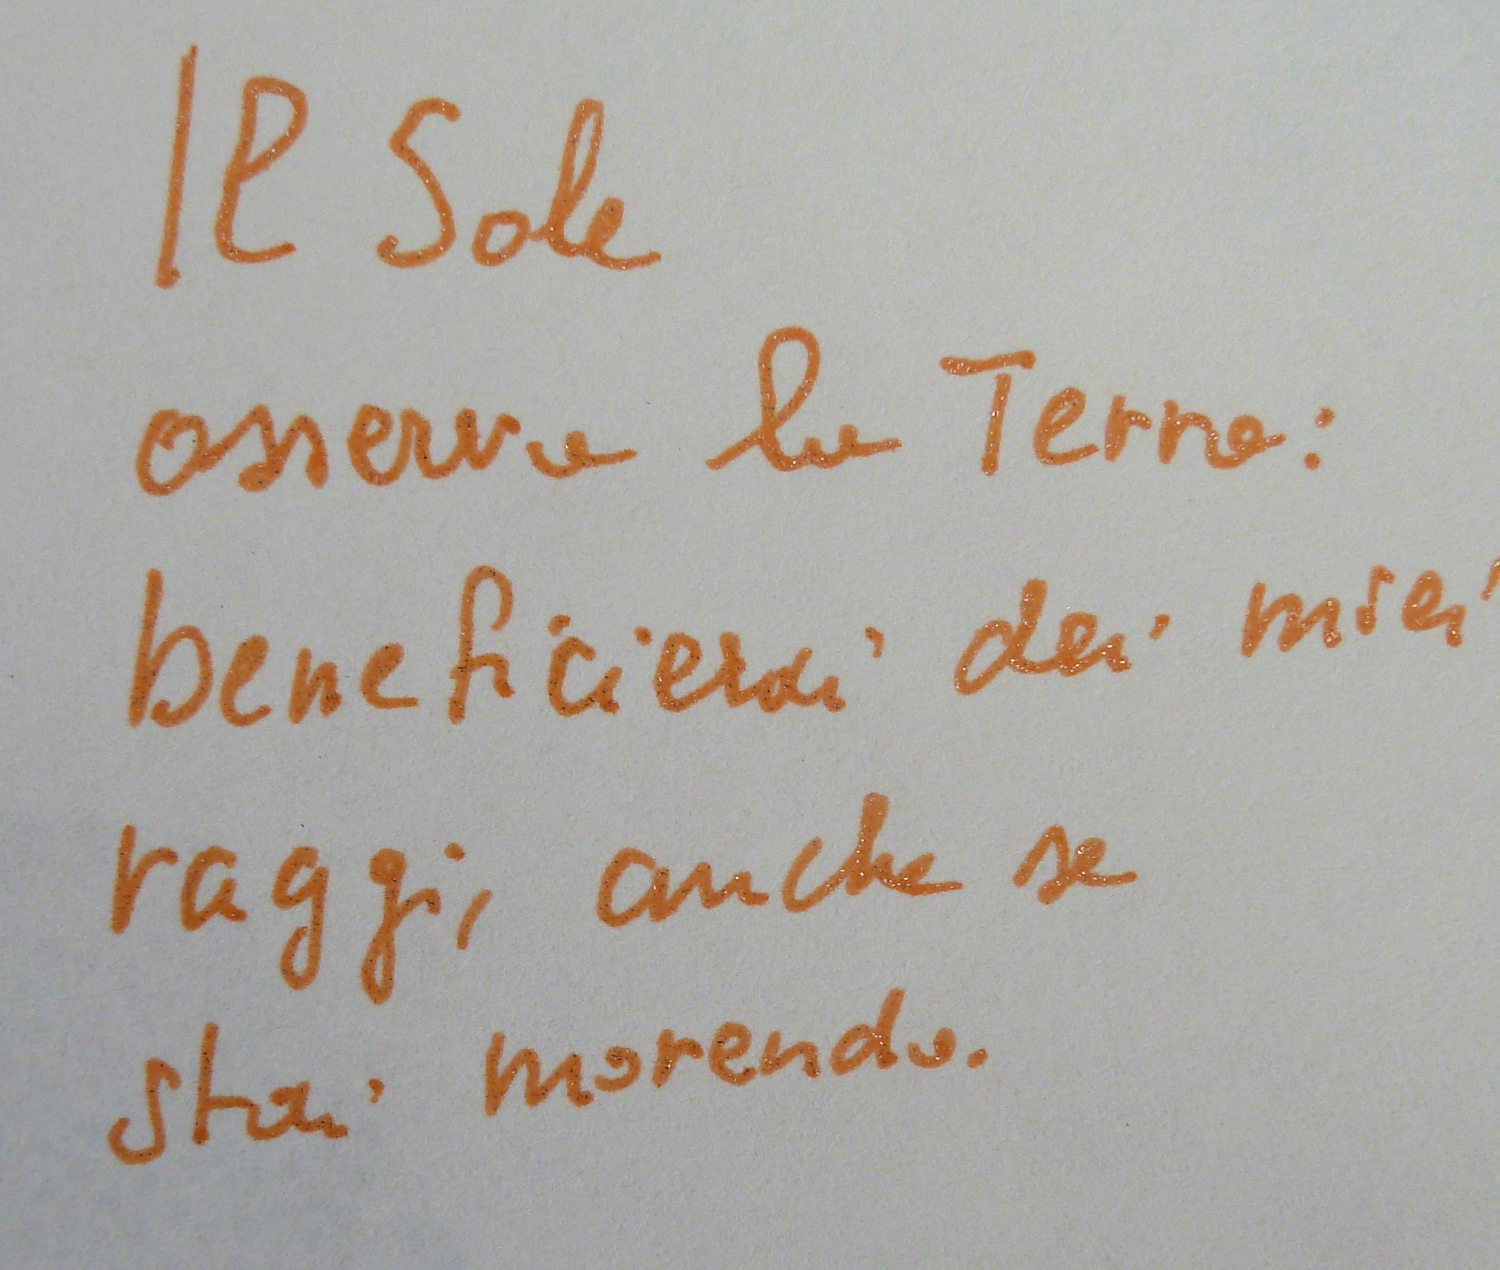 Il Sole
osserva la Terra:
beneficierai dei miei
raggi, anche se
stai morendo.